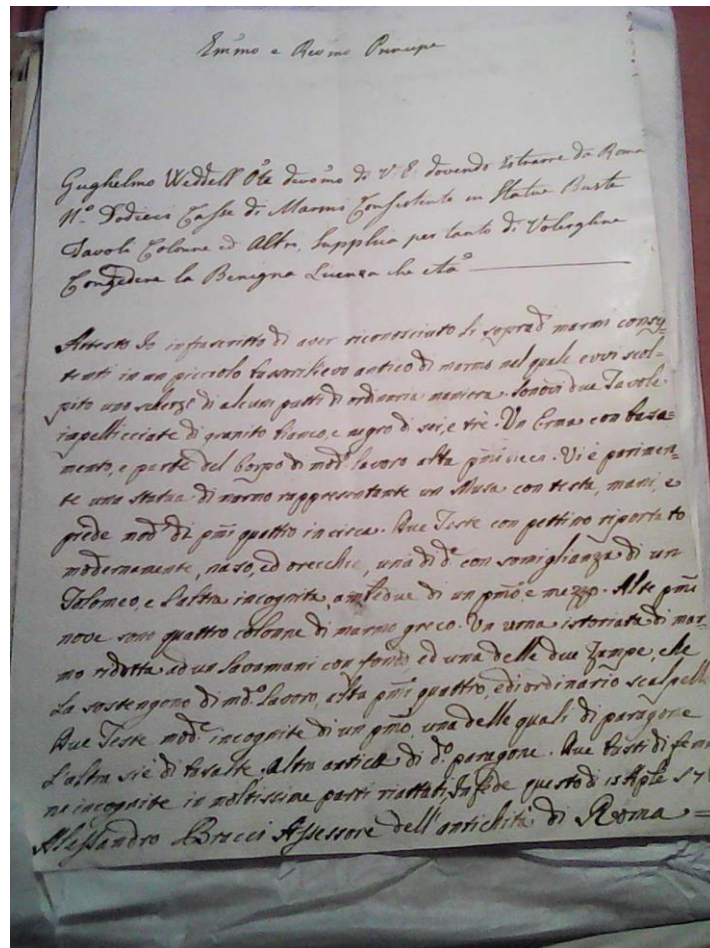 Em̃mo e Revmo Principe
Guglielmo Weddell Ore devomo di V. E. dovendo Estrarre da Roma
N.° Dodieci Casse di Marmi Consistente in Statue Buste
Tavoli Colonne ed Altro, Supplica per tanto di Volerghne
Congedere la Benigna Licenza che &ta°
Attesto Io infrascritto di aver riconosciuto li soprad.i marmi consis-
tenti in un picciolo bassorilievo antico di marmo nel quale evvi scol-
pito uno scherzi di alcuni putti di ordinaria maniera. Sonovi due Tavole
impellicciate di granito bianco, e negro di sei, e trè. Un Erma con basa=
mento, e parte del Corpo di mod.° lavoro alta pmi Vi è parimen-
te una statua di marmo rappresentante un Musa con testa, mani, e
piede mod.i di pmi quattro in circa. Due Teste con pettino riportato
modernamente, naso, ed orecchie, una di d.e con somiglianza di un
Tolomeo, e l'altra incognita, ambedue di un pmo, e mezzo. Alte pmi
nove sono quattro colonne di marmo greco. Un urna istoriata di mar-
mo ridotta ad un Lavamani con fondo ed una delle due Zampe, che
La sostengono di md.° lavoro, alta pmi quattro, e di ordinario scalpell
Due Teste mod.e incognite di un pmo, una delle quali di paragone
L'altra si è di basalte. Altra antica di d.° paragone. Due busti di femi
ne incognite in moltissime parti riattati, In fede questo dì 17
Alessandro Bracci Assessore dell'antichità di Roma =